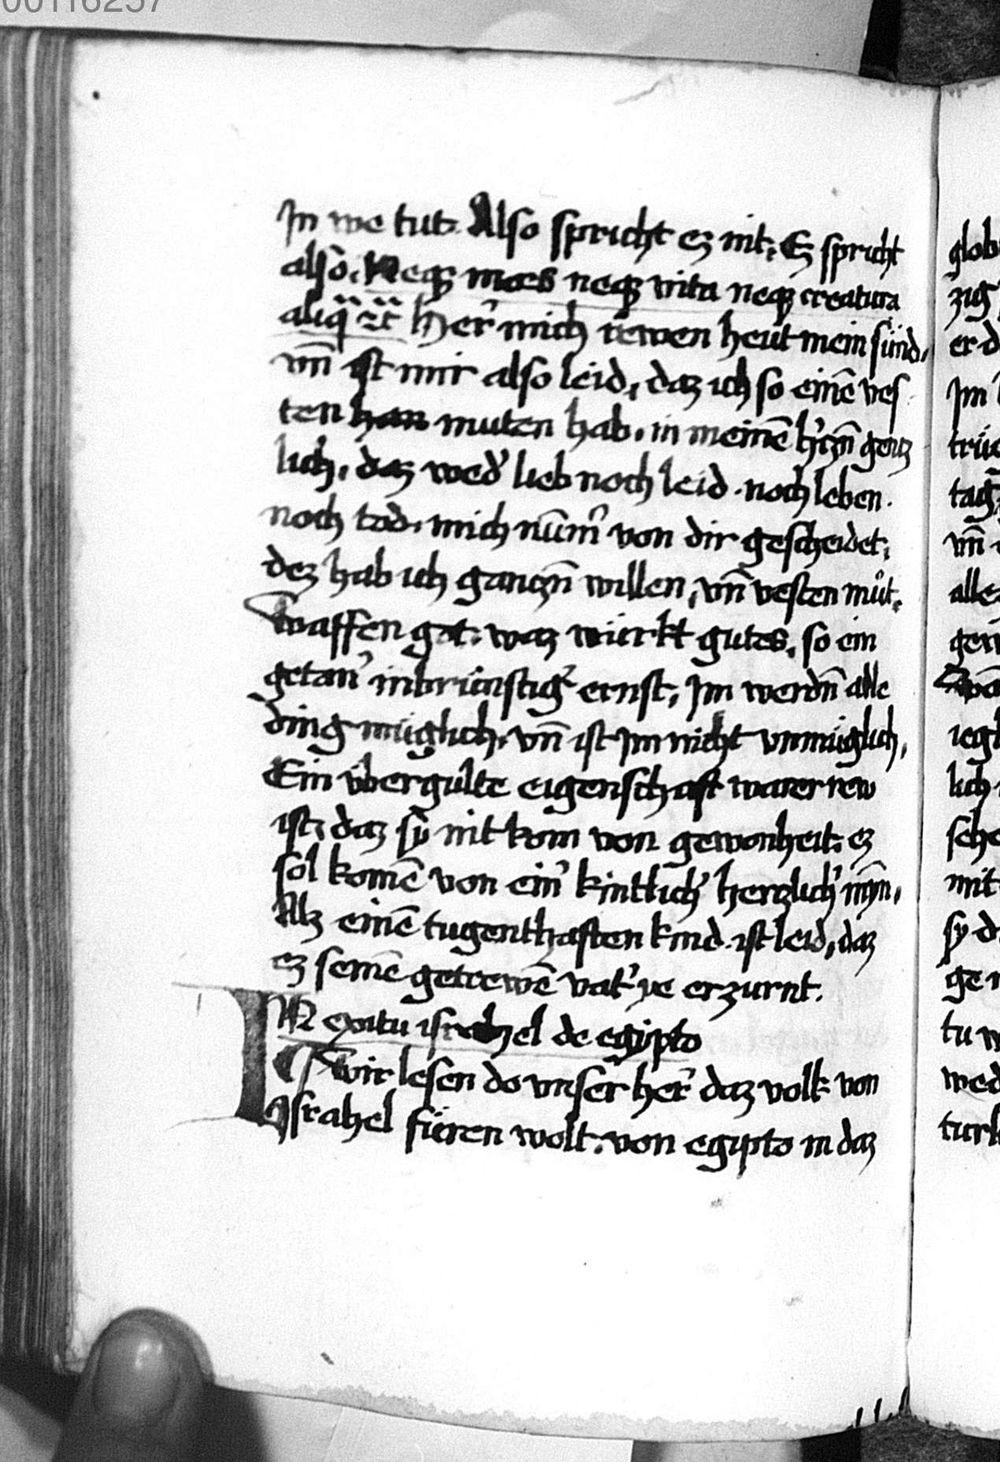 00116257
Jn we tut. Also spricht ez nit. Ez spricht
also. Neqȝ mors neqȝ vita neqȝ creatura
aliq̃ ⁊c̃ Her̃ mich rewen heüt mein sünd.
vnñ ist mir also leid, daz ich so einẽ ves
ten han muten hab. in meinẽ h'czñ gentz
lich. daz wed' lieb noch leid. noch leben.
noch tod. mich nūm' von dir gescheidet.
dez hab ich ganczñ willen, vnñ vesten můt.
Waffen got. waz würkt gutes, so ein
getan' inbrünstig' ernst, Jm werdñ alle
ding müglich, vnñ ist jm nicht vnmüglich,
Ein vbergulte eigenschaft warer rew
ist, daz sÿ nit kom von gewonheit. ez
sol komẽ von ein' kintlich' herzlich' mȳn,
Alz einẽ tugenthaften kind ist leid, daz
ez seinẽ getrewẽ vat' ye erzurnt.
IN exitu israhel de egipto
¶ Wir lesen do vnser her̃ daz volk von
Jsrahel füren wolt. von egipto in daz
glob
zig
er d
Jm
trüc
tag
vnñ
alle
gew
iegl
lich
sche
mit
sy d
ge
tu w
wed
turk